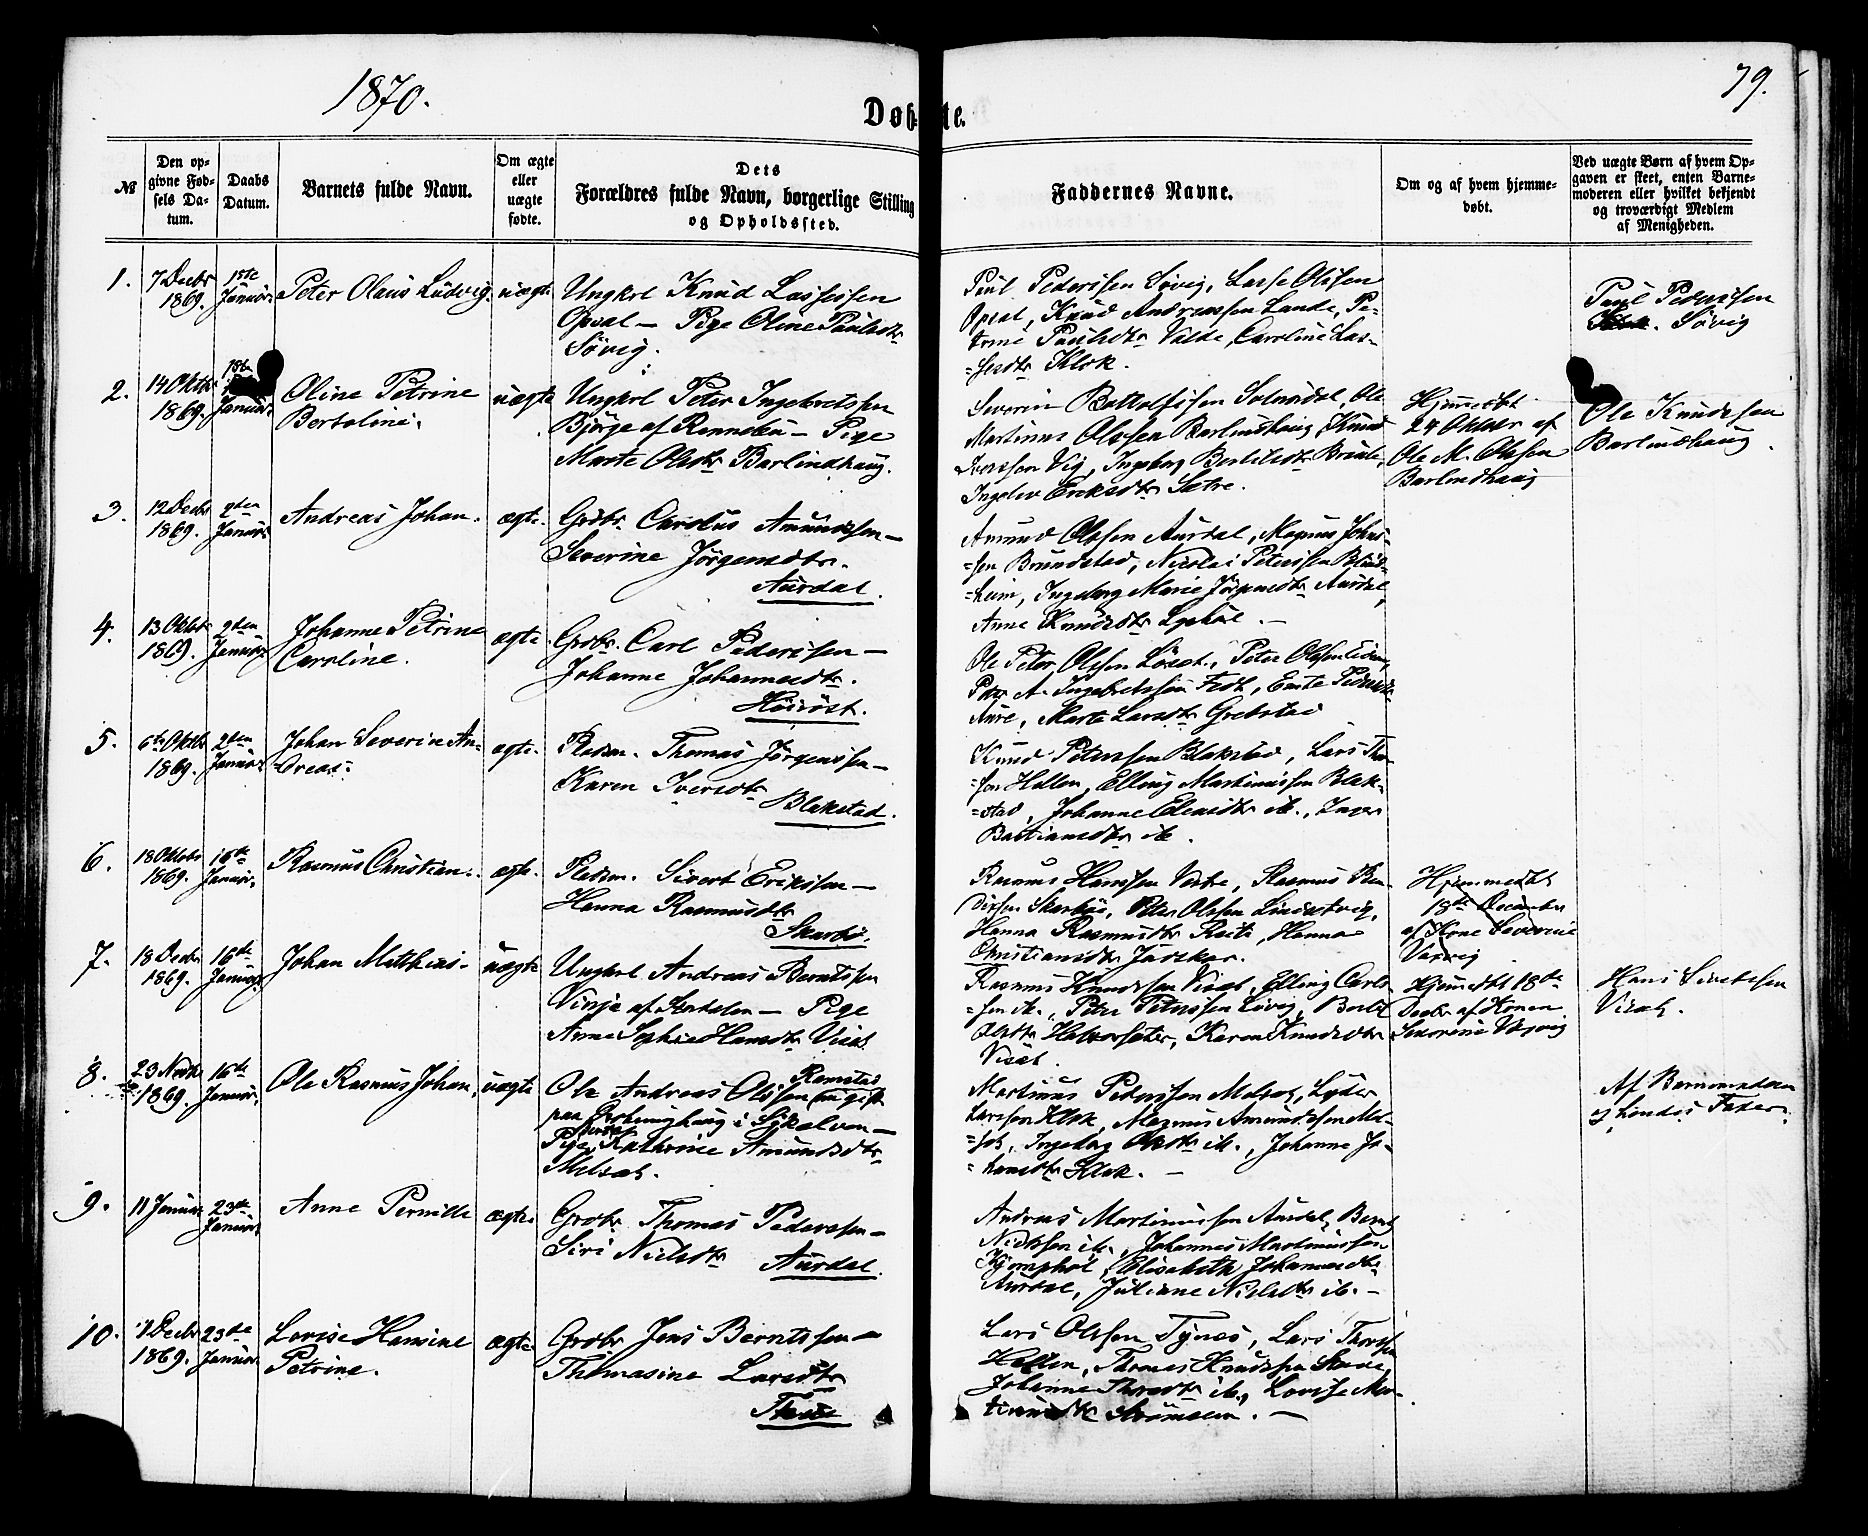 1870.
79.
Døbte.
№
Den opgivne Fødsels Datum.
Daabs Datum.
Barnets fulde Navn.
Om ægte eller uægte fødte.
Dets Forældres fulde Navn, borgerlige Stilling og Opholdssted.
Faddernes Navne.
Om og af hvem hjemmedøbt.
Ved uægte Børn af hvem Opgaven er skeet, enten Barnemoderen eller hvilket bekjendt og troværdigt Medlem af Menigheden.
1. 7 Decbr 1869. 1ste Januar Peter Olaus Ludvig uægte
Ungkrl Knud Lassessen
Opsal — Pige Oline Paulsdtr
Søvig.
Paul Pederssen Søvig, Lasse Olssen
Opsal, Knud Andreassen Lande, Pe-
trine Paulsdtr Valde, Caroline Las-
=sesdtr Klok.
Paul Pederssen
Søvig
2. 14 Oktbr 1869. Januar Oline Petrine
Bertoline. uægte
Ungkrl Peter Ingebretssen
Bjørge af Rennebu — Pige
Marte Olsdtr Barlindhaug.
Severin Bottolfssen Solnørdal, Ole
Martinus Olssen Barlindhaug, Knud
Iverssen Vig, Ingeborg
Ingelev Eriksdtr Sætre.
Hjemmedbt
24 Oktbr af
Ole M. Olssen
Barlindhaug
Ole Knudssen
Barlindhaug
3. 12 Decbr 1869. 9den Januar Andreas Johan. ægte.
Grdbr. Carolus Amundssen —
Severine Jørgensdtr.
Aurdal.
Amund Olssen Aurdal, Magnus Johns-
=sen Brundstad, Nicolai Peterssen Blind-
=heim, Ingeborg Marie Jørgensdtr Aurdal,
Anne Knudsdtr
4. 13 Oktbr 1869. 9den Januar Johanne Petrine
Caroline. ægte.
Grdbr. Carl Pederssen —
Johanne Johannesdtr.
Ole Peter Olssen Løset, Peter Olssen
Peter A. Ingebretssen Fedt,
Aure, Marte Larsdtr Grebstad
5. 6te Oktbr 1869. 9den Januar Johan Severin An-
=dreas. ægte.
Pladsm. Thomas Jørgenssen —
Karen Iversdtr
Blakstad.
Knud Peterssen Blakstad, Lars Tho-
=sen Hellen, Elling Martinussen Blak-
=stad, Johanne Eliasdtr ib., Inger
Bastiansdtr ib.
6. 18 Oktbr 1869. 16de Januar Rasmus Christian. ægte.
Pladsm. Sivert Erikssen —
Hanna Rasmusdtr
Skarbø.
Rasmus Hanssen Vestre, Rasmus Ben-
dixsen Skarbø, Peter Olssen Lindsetvig,
Hanna Rasmusdtr Reite, Hanna
Christiansdtr
Hjemmedbt
18de December
af Kone Severine
Vaxvig
7. 18 Decbr 1869. 16de Januar Johan Mathias. uægte
Ungkrl Andreas Berntssen
Vinje af Surdalen — Pige
Anne Sophie Hansdtr Viset.
Rasmus Knudssen Viset, Elling Carls-
=sen ib., Peter Peterssen Løvig, Berte
Olsdtr Halvorseter, Karen Knudsdtr
Viset.
Hjemmedbt 18de
Decbr af Konen
Severine Vaxvig
Hans Sivertssen
Viset.
8. 23 Novbr 1869. 16de Januar Ole Rasmus Johan. uægte
Ole Andreas Olssen Ramstad (ugift)
i Sykelven —
Pige Kathrine Amundsdtr
Melset.
Martinus Pederssen Melset, Syver
Larssen Klok, Magnus Amundssen Mel-
=set, Ingeborg Olsdtr ib., Johanne Jo-
=hansdtr Klok. —
Af Barnemoderen
og hendes Fader.
9. 11 Januar 23de Januar Anne Pernille ægte.
Grdbr. Thomas Pederssen —
Siri Nielsdtr
Aurdal.
Andreas Martinussen Aurdal, Bernt
Nielssen ib., Johannes Martinussen
Kjemphol, Elisabeth Johannesdtr
Aurdal, Juliane Nielsdtr ib. —
10. 7 Decbr 1869. 23de Januar Lovise Hansine
Petrine. ægte.
Grdbr Jens Berntssen —
Thomasine Larsdtr
Lars Olssen Tynes, Lars Thorssen
Hellen, Thomas Knudssen
Johanne Thoresdtr ib., Lovise Mar-
tinusdtr Strømmen. —